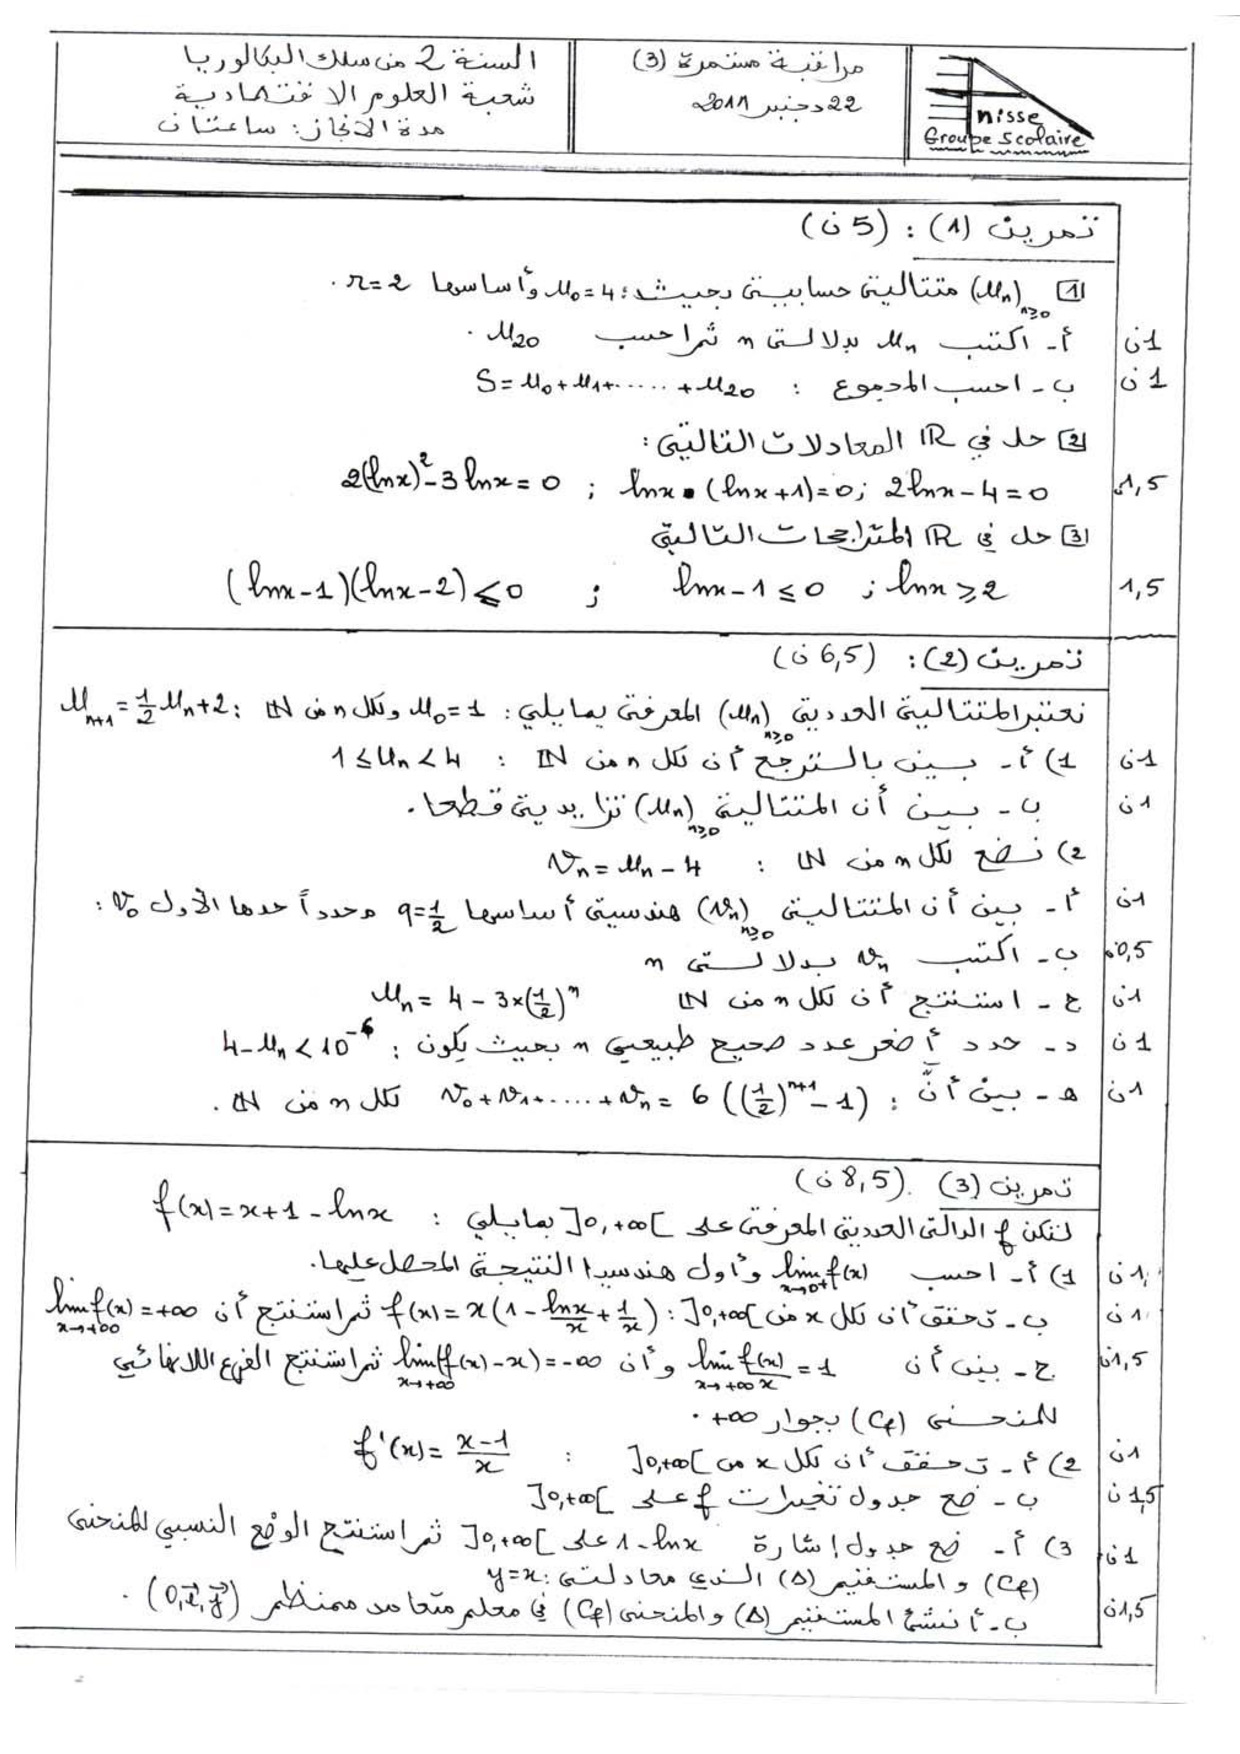 السنة 2 من سلك البكالوريا
شعبة العلوم الاقتصادية
مدة الانجاز: ساعتان
مراقبة مستمرة (3)
22 دجنبر 2011
Anisse
Groupe Scolaire
تمرين (1) : (5 ن)
1 (Un)n≥0 متتالية حسابية بحيث: U0=4 وأساسها r=2 .
أ- اكتب Un بدلالة n ثم احسب U20 . 1ن
ب- احسب المجموع : S = U0+U1+.....+U20 1ن
2 حل في IR المعادلات التالية:
2lnx-4=0 ; lnx.(lnx+1)=0 ; 2(lnx)²-3lnx=0 1,5
3 حل في IR المتراجحات التالية
lnx≥2 ; lnx-1≤0 ; (lnx-1)(lnx-2)≤0 1,5
تمرين (2) : (6,5 ن)
نعتبر المتتالية العددية (Un)n≥0 المعرفة بمايلي: U0=1 ولكل n من IN : Un+1 = 1/2 Un+2
1) أ- بين بالترجع أن لكل n من IN : 1≤Un<4 1ن
ب- بين أن المتتالية (Un)n≥0 تزايدية قطعا. 1ن
2) نضع لكل n من IN : Vn = Un - 4
أ- بين أن المتتالية (Vn)n≥0 هندسية أساسها q=1/2 محدداً حدها الأول V0 : 1ن
ب- اكتب Vn بدلالة n 0,5
ج- استنتج أن لكل n من IN Un = 4 - 3×(1/2)^n 1ن
د- حدد أصغر عدد صحيح طبيعي n بحيث يكون : 4-Un < 10^-6 1ن
ه- بين أنَّ : V0+V1+.....+Vn = 6((1/2)^n+1 - 1) لكل n من IN . 1ن
تمرين (3) . (8,5 ن)
لتكن f الدالة العددية المعرفة على ]0,+∞[ بمايلي : f(x) = x+1-lnx
1) أ- احسب lim f(x) x→0+ وأول هندسيا النتيجة المحصل عليها. 1ن
ب- تحقق أن لكل x من ]0,+∞[ : f(x) = x(1 - lnx/x + 1/x) ثم استنتج أن lim f(x) = +∞ x→+∞ 1ن
ج- بين أن lim f(x)/x = 1 x→+∞ وأن lim(f(x)-x) = -∞ x→+∞ ثم استنتج الفرع اللانهائي 1,5ن
للمنحنى (Cf) بجوار +∞ .
2) أ- تحقق أن لكل x من ]0,+∞[ : f'(x) = x-1/x 1ن
ب- ضع جدول تغيرات f على ]0,+∞[ 1,5ن
3) أ- ضع جدول إشارة 1-lnx على ]0,+∞[ ثم استنتج الوضع النسبي للمنحنى 1ن
(Cf) والمستقيم (Δ) الذي معادلته: y=x
ب- أنشئ المستقيم (Δ) والمنحنى (Cf) في معلم متعامد ممنظم (0,i,j) . 1,5ن